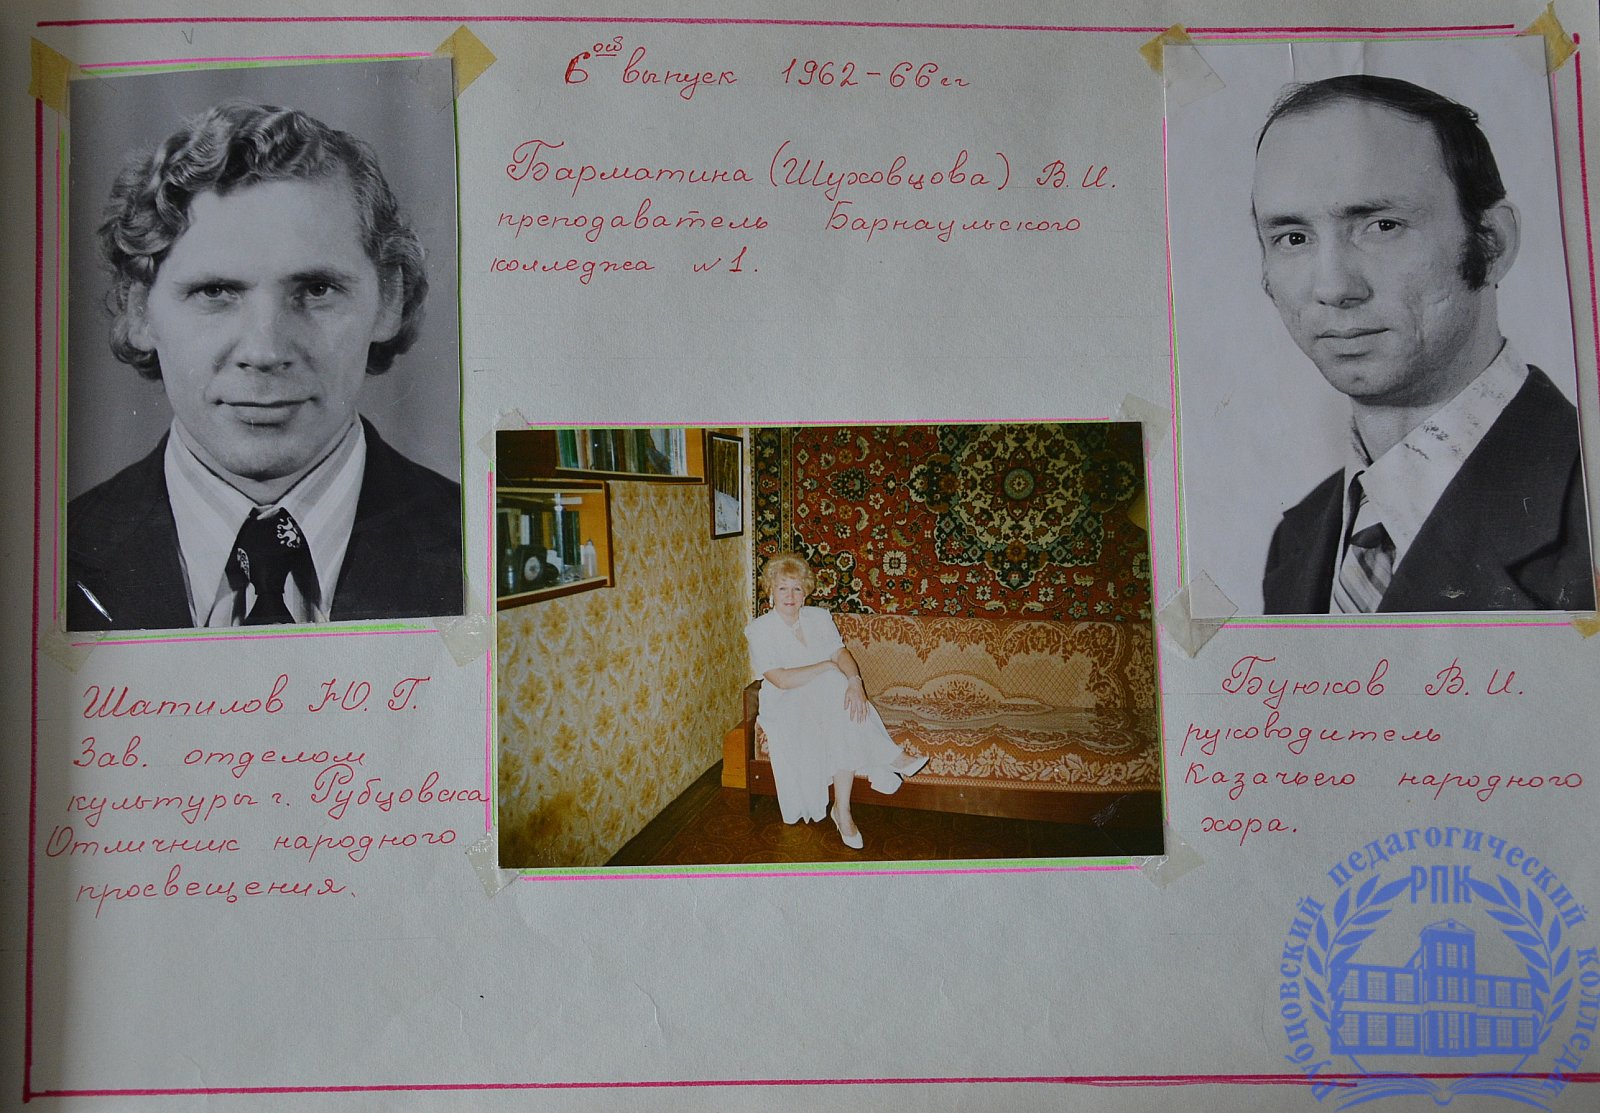 6ой выпуск 1962-66гг
Барматина (Шуховцова) В. И.
преподаватель Барнаульского
колледжа №1.
Шатилов Ю. Г.
Зав. отделом
культуры г. Рубцовска
Отличник народного
просвещения.
Буюков В. И.
руководитель
Казачьего народного
хора.
Рубцовский педагогический колледж
РПК